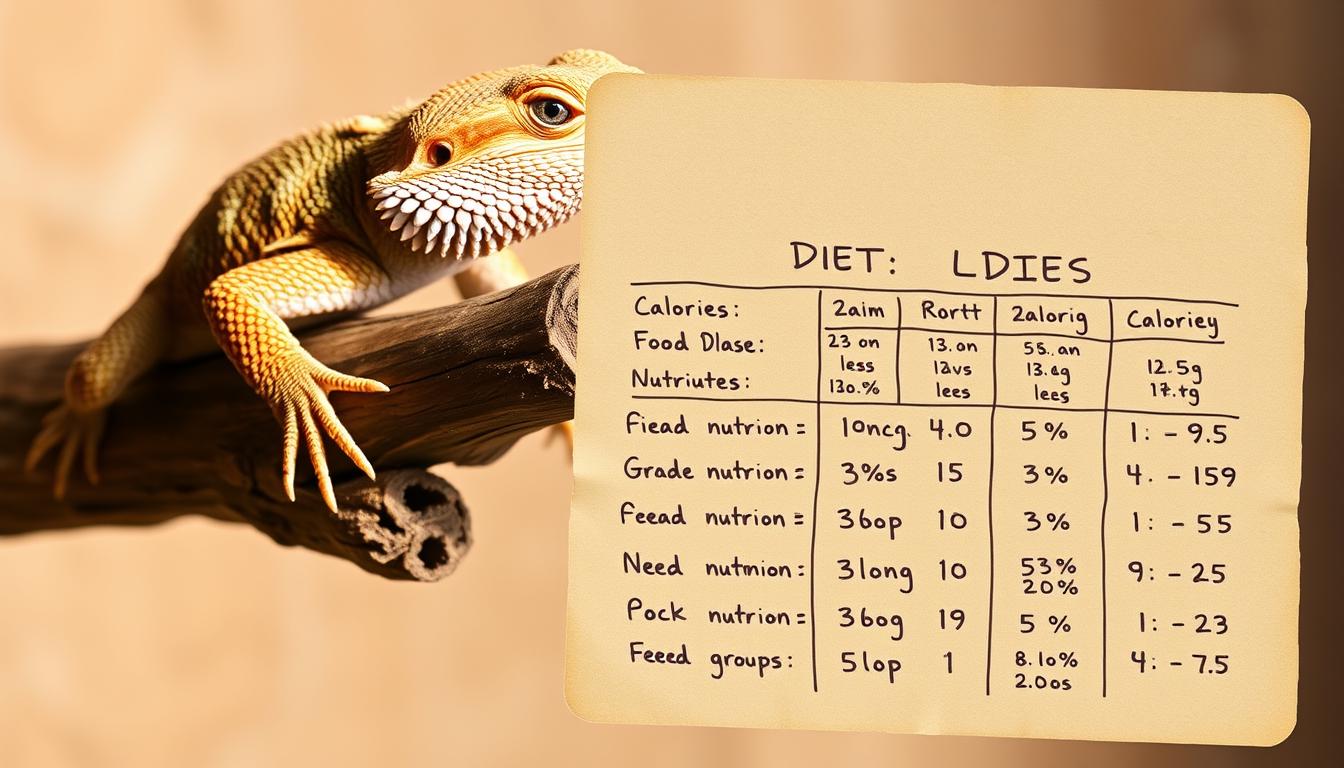 DIET: LDIES
Calories: 2aim Rortt 2alorig Caloriey
Food Dlase: 23 on 13.on 5s..an
less 12vs 13.eg 12.5g
Nutriutes: 13o.% lees lees 17.tg
Fiead nutrion = 10ncg. 4.0 5% 1: - 9.5
Grade nutrion = 3%s 15 3% 4. - 159
Feead nutrion = 36op 10 3% 1: - 55
Need nutmion: 3long 10 53% 9: - 25
20%
Pock nutrion = 36og 19 5% 1: - 23
Feeed groups: 5lop 1 8.10% 4: - 7.5
2.0os